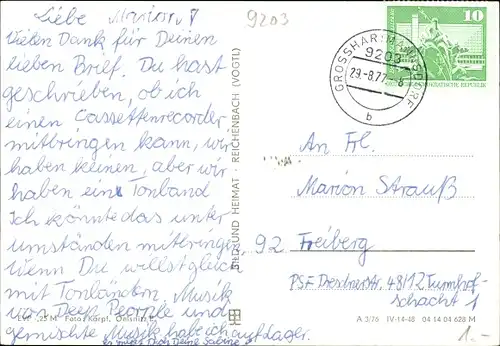 Liebe Marion!
9203
Vielen Dank für Deinen
lieben Brief. Du hast
geschrieben, ob ich
einen Cassettenrecorder
mitbringen kann, wir
haben keinen, aber wir
haben ein Tonband
Ich könnte das unter
umständen mitbringen,
wenn Du willst gleich
mit Tonbändern. Musik
von Deep Pearple und
gemischte Musik habe ich auf Lager.
Deine Sabine
EVP -,25 M Foto: Karpf,
BILD UND HEIMAT · REICHENBACH (VOGTL)
10
DEUTSCHE DEMOKRATISCHE REPUBLIK
GROSSHARTMANNSDORF
9203
29.-8.77-8
b
An Frl.
Marion Strauß
92 Freiberg
PSF Dresdnerstr. 48/12 Turmhof-
schacht 1
A 3/76 IV-14-48 04 14 04 628 M
1.-